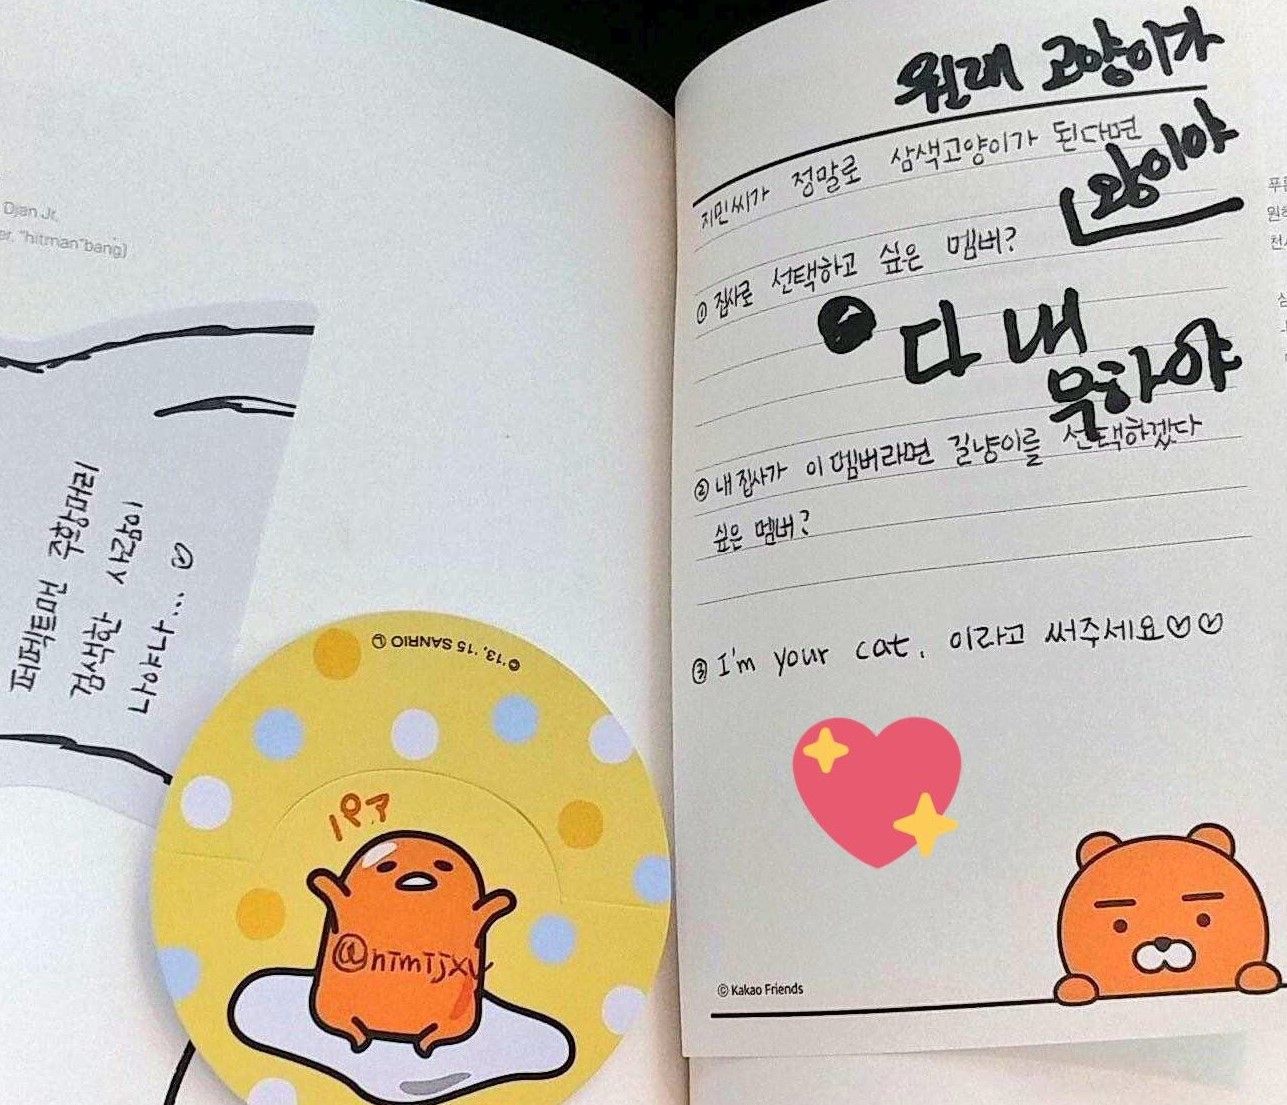 Djan Jr,
er, "hitman"bang)
퍼펙트맨 주황머리
검색한 사람이
나야나...
©'13, '15 SANRIO Ⓛ
원래 고양이가
왕이야
지민씨가 정말로 삼색고양이가 된다면
① 집사로 선택하고 싶은 멤버?
다 내
부하야
② 내 집사가 이 멤버라면 길냥이를 선택하겠다
싶은 멤버?
③ I'm your cat. 이라고 써주세요♡♡
© Kakao Friends